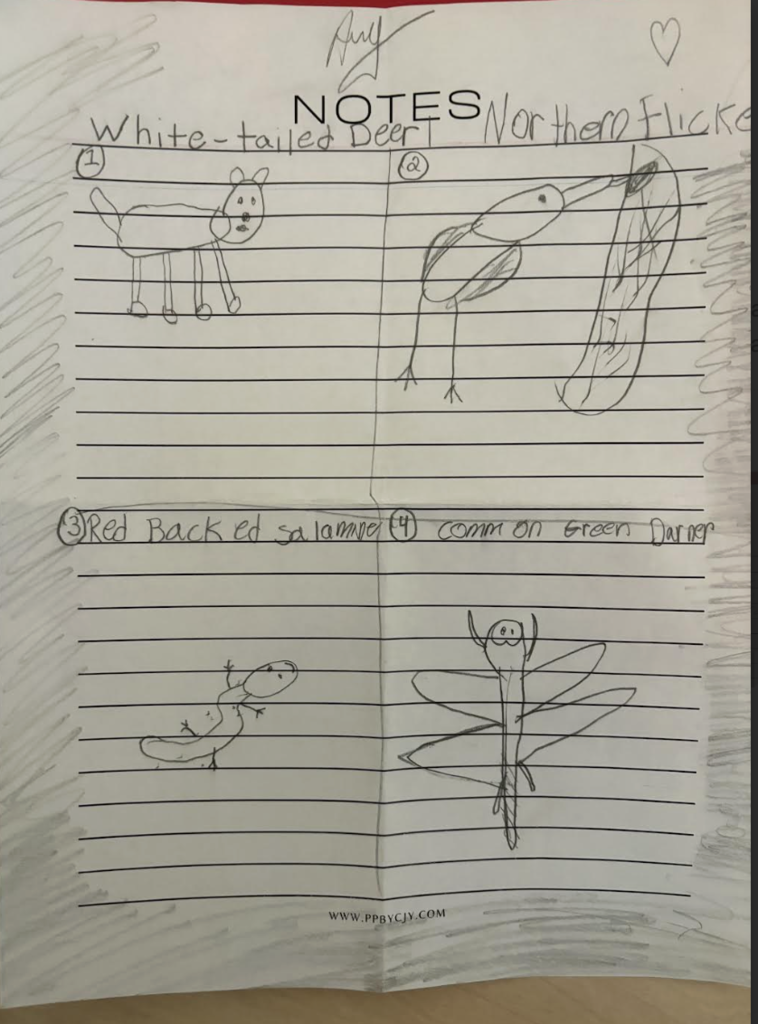 Amy
NOTES
White-tailed Deer Northern Flicke
① ②
③ Red Backed Salamander ④ common Green Darner
WWW.PPBYCJY.COM